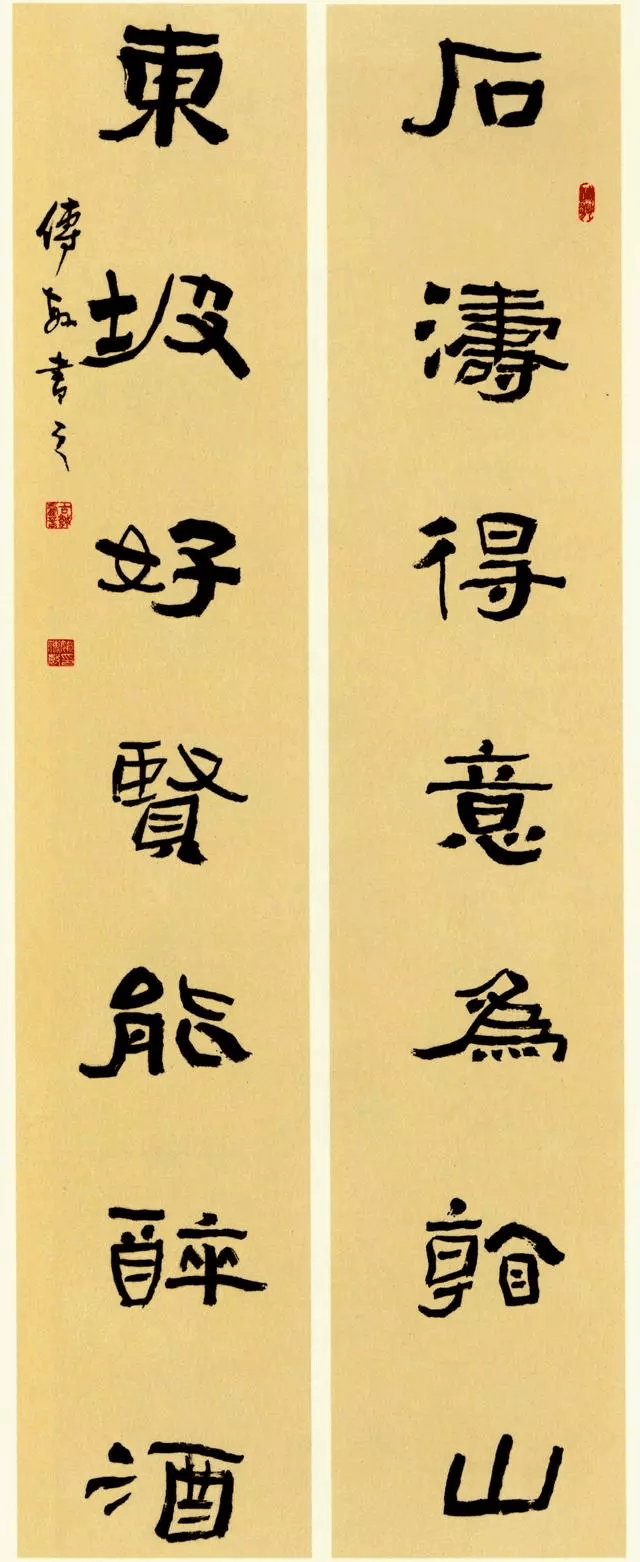 石濤得意為山
東坡好賢能醉酒
書之